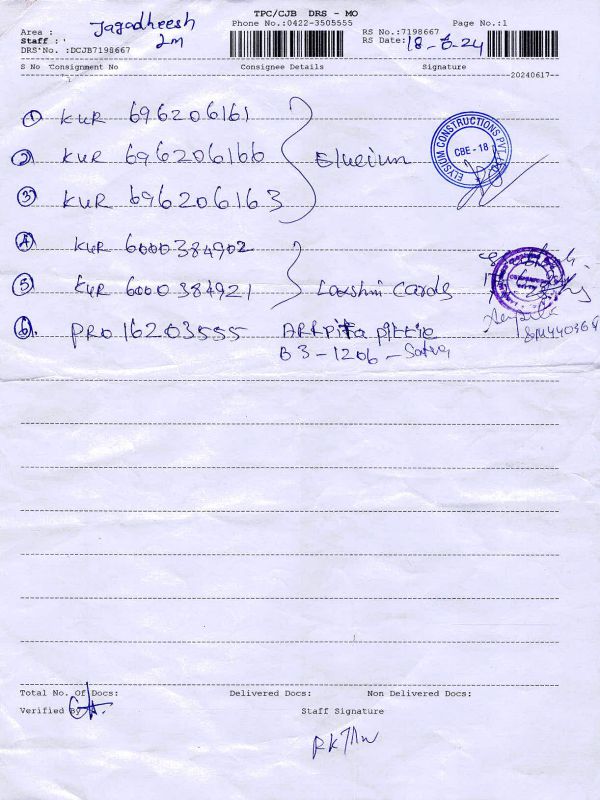 TPC/CJB DRS - MO
Jagadheesh
Phone No.:0422-3505555
Page No.:1
Area :
RS No.:7198667
Staff :
2m
RS Date: 18-6-24
DRS No. :DCJB7198667
S No Consignment No Consignee Details Signature
20240617
1 KUR 696206161
2 KUR 696206166 Elysium
ELYSIUM CONSTRUCTIONS PVT LTD
CBE - 18
3 KUR 696206163
4 KUR 6000384902
5 KUR 6000384921 Lakshmi Cards
6. PRO 16203555 ARRPita pittie
B3-1206-
Total No. Of Docs: Delivered Docs: Non Delivered Docs:
Verified By
Staff Signature